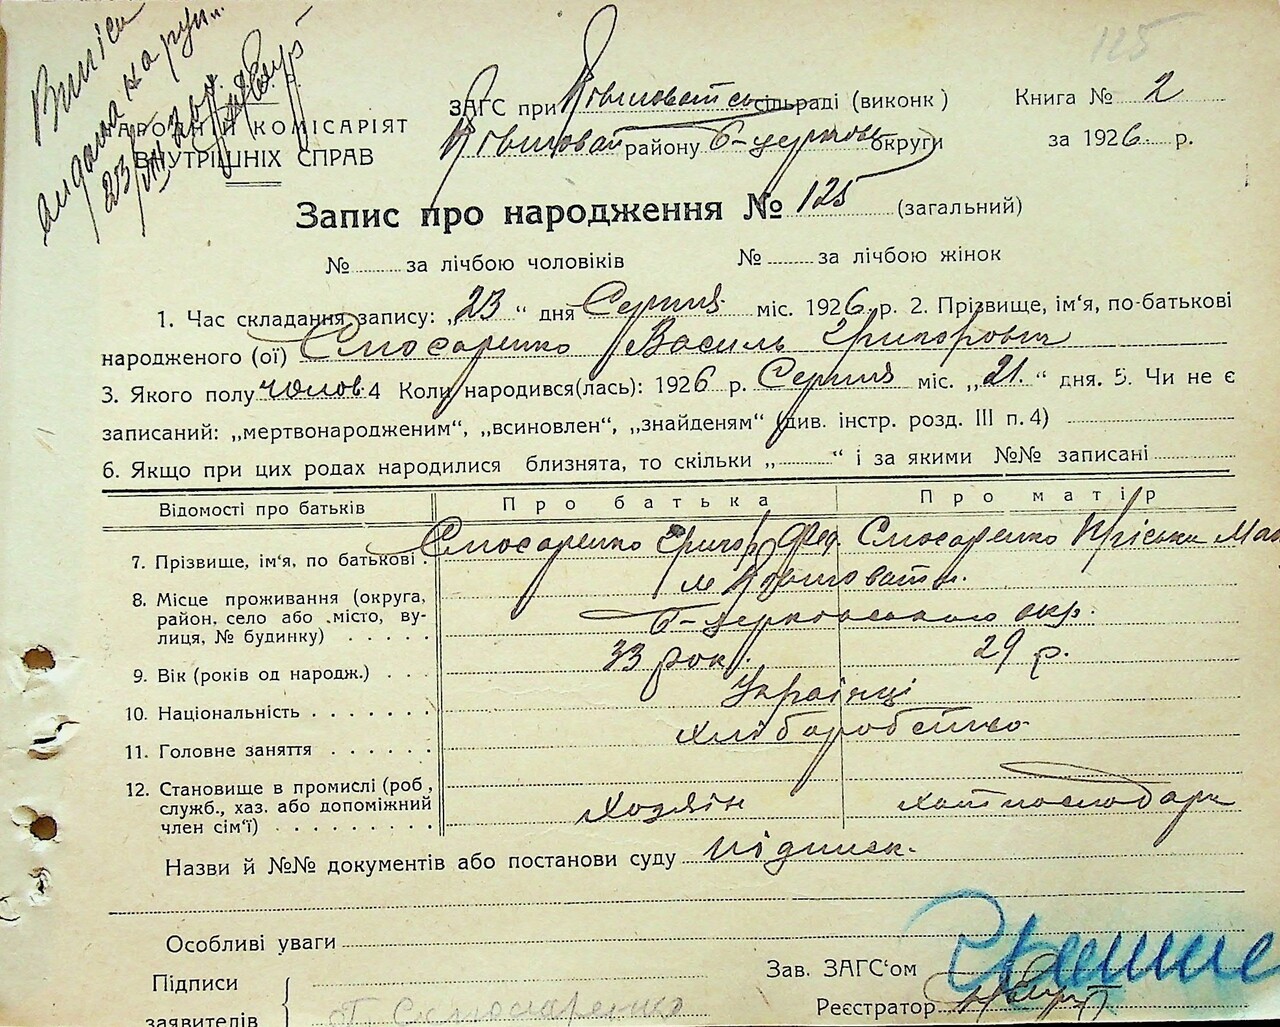 125
Випись
видана на руки
23/VII
ЗАГС при сільраді (виконк) Книга № 2
НАРОДНІЙ КОМІСАРІЯТ
ВНУТРІШНІХ СПРАВ
району Б-церковс округи за 1926 р.
Запис про народження № 125 (загальний)
№ за лічбою чоловіків № за лічбою жінок
1. Час складання запису: „23“ дня Серпня міс. 1926 р. 2. Прізвище, ім'я, по-батькові
народженого (ої) Слюсаренко Василь Григорович
3. Якого полу чолов 4 Коли народився(лась): 1926 р. Серпня міс. „21.“ дня. 5. Чи не є
записаний: „мертвонародженим“, „всиновлен“, „знайденям“ (див. інстр. розд. III п. 4)
6. Якщо при цих родах народилися близнята, то скільки „ “ і за якими №№ записані
Відомості про батьків Про батька Про матір
7. Прізвище, ім'я, по батькові. Слюсаренко Григор Фед. Слюсаренко Пріська
8. Місце проживання (округа, район, село або місто, вулиця, № будинку) Б-церковського окр.
9. Вік (років од народж.) 33 рок. 29 р.
10. Національність Українці
11. Головне заняття хліборобство
12. Становище в промислі (роб, служб., хаз. або допоміжний член сім'ї) Хозяїн
Назви й №№ документів або постанови суду підписк.
Особливі уваги
Підписи Зав. ЗАГС'ом
заявителів Г Слюсаренко Реєстратор